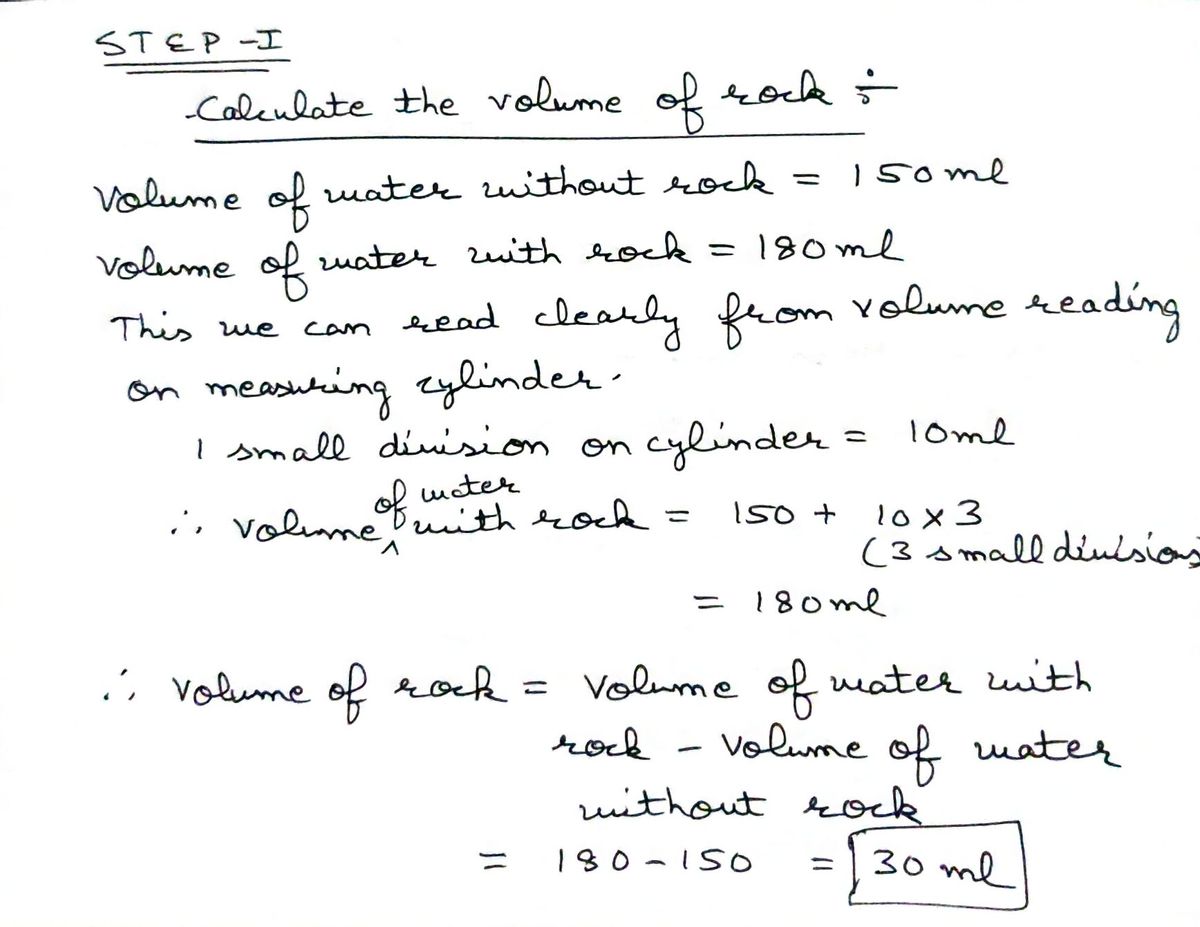 STEP-I
Calculate the volume of rock ÷
Volume of water without rock = 150ml
Volume of water with rock = 180ml
This we can read clearly from volume reading
on measuring cylinder.
1 small division on cylinder = 10ml
of water
∴ Volume ^ with rock = 150 + 10 x 3
(3 small divisions
= 180ml
∴ Volume of rock = Volume of water with
rock - Volume of water
without rock
= 180-150 = 30 ml